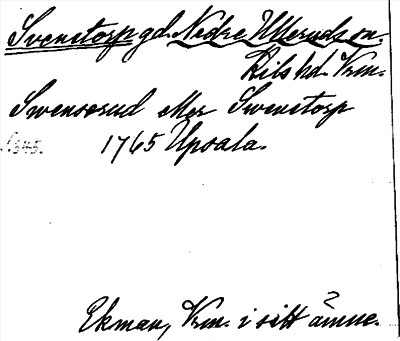 Svenstorp gd. Nedre Ulleruds sn.
Kils hd. Vrm.
Swenserud eller Swenstorp
1765 Upsala.
Ekman, Vrm. i sitt ämne.